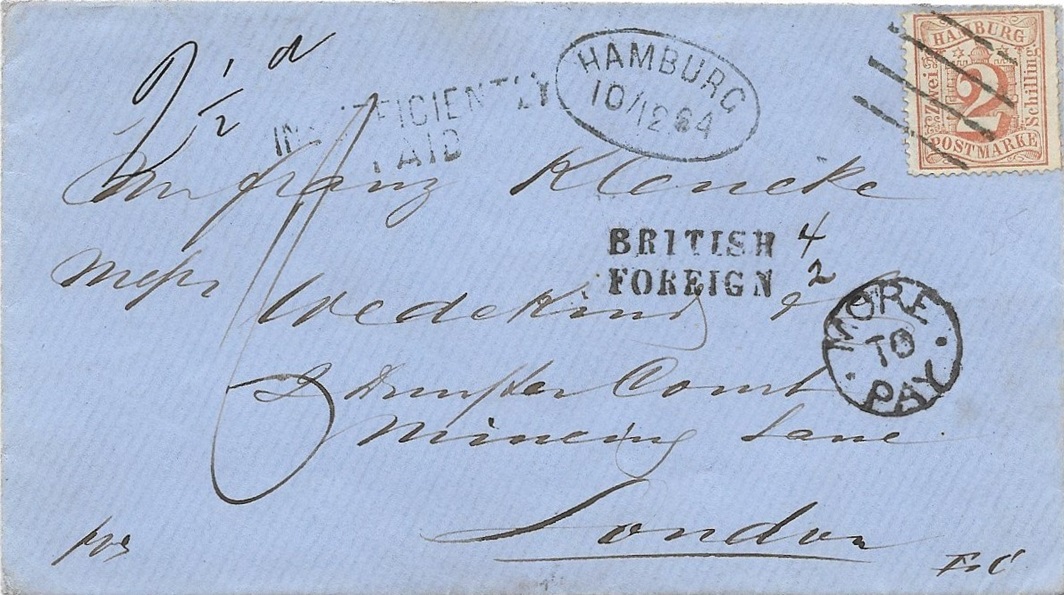 HAMBURG
Zwei 2 Schilling
POSTMARKE
HAMBURG
10/12 64
INSUFFICIENTLY
PAID
2 1/2 d
Franz Klencke
Messrs Wedekind &
2 Dunster Court
Mincing Lane
London
BRITISH
FOREIGN
4
2
MORE
TO
PAY